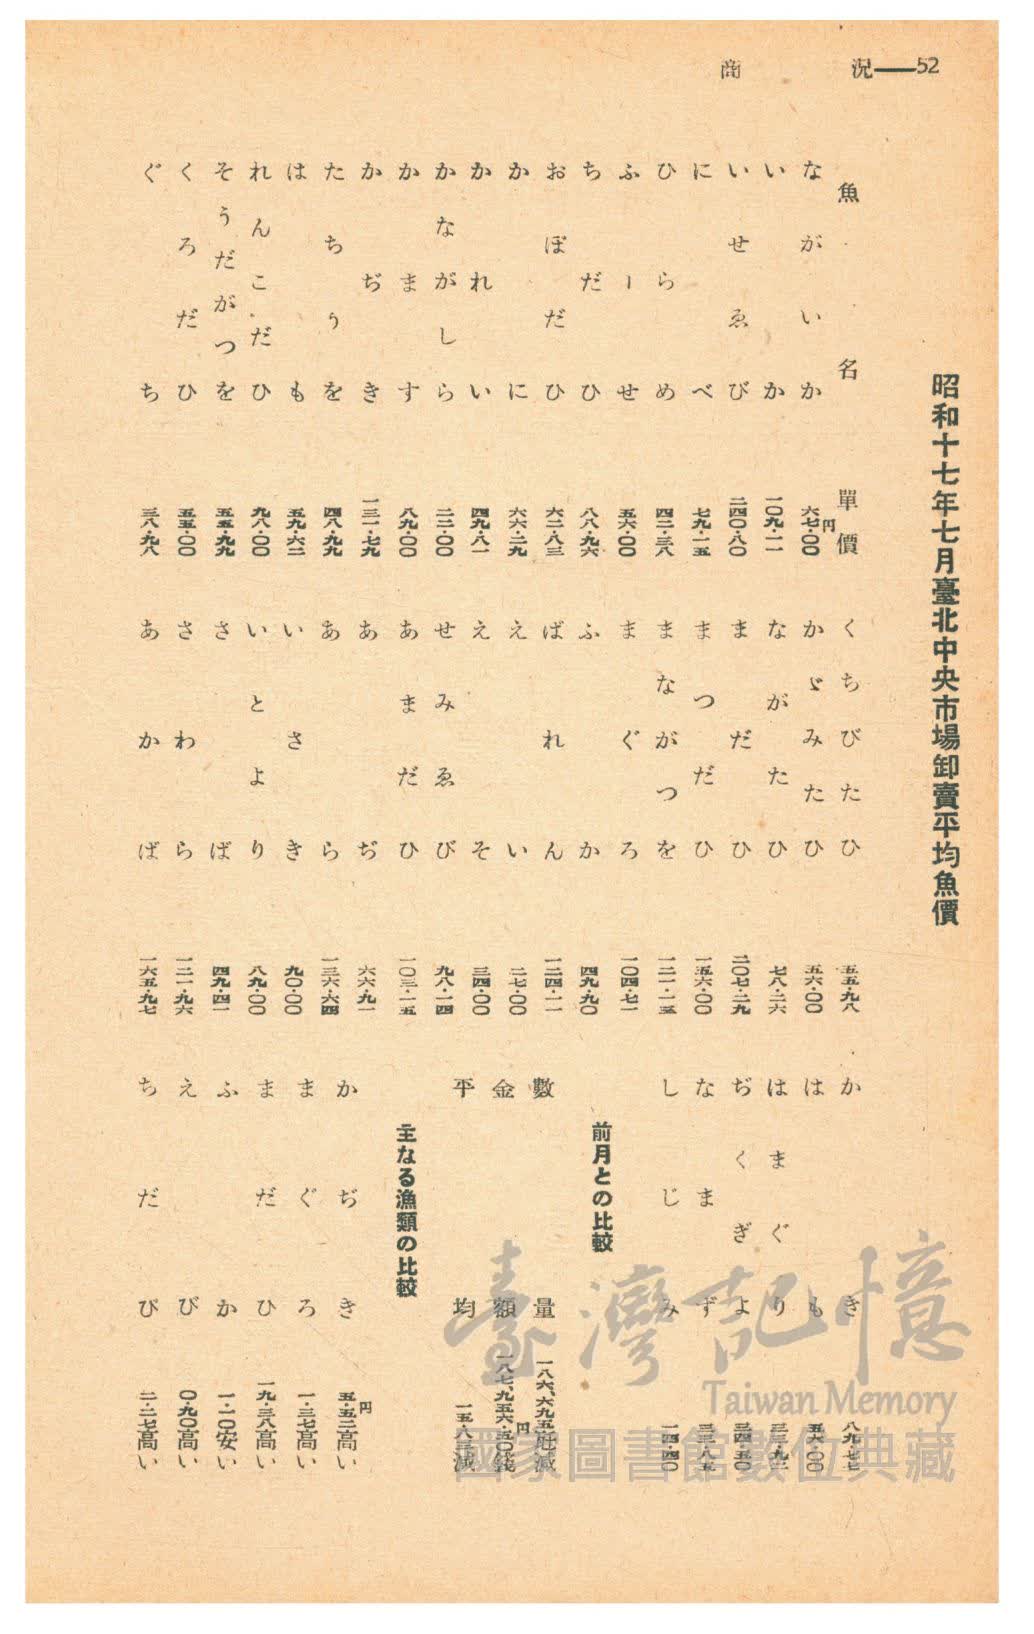 商況——52
昭和十七年七月臺北中央市場卸賣平均魚價
魚名 單價
ながいか 六七・〇〇円
いか 一〇九・一一
いせゑび 二四〇・八〇
にべ 七九・一五
ひらめ 四二・三八
ふーせ 五六・〇〇
ちだひ 八八・九六
おぼだひ 六二・八三
かに 六六・二九
かれい 四九・八一
かながしら 二二・〇〇
かます 八九・〇〇
かぢき 一三一・七九
たちうを 四八・九九
はも 五九・六二
れんこだひ 九八・〇〇
そうだがつを 五五・九九
くろだひ 五五・〇〇
ぐち 三八・九八
くちびたひ 五五・九八
かゞみたひ 五六・〇〇
ながたひ 七八・二六
まだひ 二〇七・二九
まつだひ 一五六・〇〇
まながつを 一二一・一三
まぐろ 一〇四・七一
ふか 四九・九〇
ばれん 一二四・一一
えい 二七・〇〇
えそ 三四・〇〇
せみゑび 九八・一四
あまだひ 一〇三・一五
あぢ 六六・九一
あら 一三六・六四
いさき 九〇・〇〇
いとより 八九・〇〇
さば 四九・四一
さわら 一二一・九六
あかば 一六五・九七
かき 八九・七七
はも 五六・〇〇
はまぐり 三三・九二
ぢくぎよ 三四・五〇
なまず 三三・八五
しじみ 一四・四〇
前月との比較
數量 一八六、六九五瓩減
金額 一八七、九五六円・五〇錢
平均 一五八三減
主なる漁類の比較
かぢき 五・五二円高い
まぐろ 一・三七高い
まだひ 一九・三八高い
ふか 一・一〇安い
えび 〇・九〇高い
ちだび 二・二七高い
臺灣記憶
Taiwan Memory
國家圖書館數位典藏